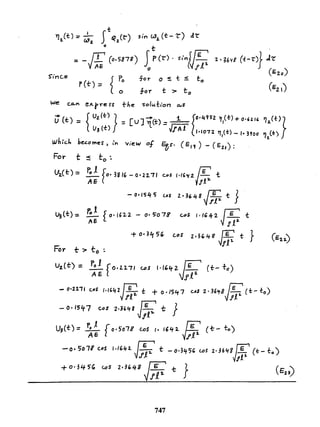 η₂(t) = 1/ω₂ ∫₀ᵗ q₂(τ) sin ω₂ (t-τ) dτ
= - √(l/AE) (0.5878) ∫₀ᵗ P(τ) · sin{√(E/ρl²) 2.3648 (t-τ)} dτ
(E₂₀)
Since P(t) = { P₀ for 0 ≤ t ≤ t₀
0 for t > t₀ (E₂₁)
we can express the solution as
U⃗(t) = {U₂(t) U₃(t)} = [U] η⃗(t) = 1/√(ρAl) {0.4952 η₁(t) + 0.6216 η₂(t)
1.1072 η₁(t) - 1.3900 η₂(t)}
which becomes, in view of Eqs. (E₁₉) - (E₂₁):
For t ≤ t₀:
U₂(t) = P₀l/AE {0.3816 - 0.2271 cos 1.1642 √(E/ρl²) t
- 0.1545 cos 2.3648 √(E/ρl²) t }
U₃(t) = P₀l/AE {0.1622 - 0.5078 cos 1.1642 √(E/ρl²) t
+ 0.3456 cos 2.3648 √(E/ρl²) t } (E₂₂)
For t > t₀:
U₂(t) = P₀l/AE {0.2271 cos 1.1642 √(E/ρl²) (t-t₀)
- 0.2271 cos 1.1642 √(E/ρl²) t + 0.1547 cos 2.3648 √(E/ρl²) (t-t₀)
- 0.1547 cos 2.3648 √(E/ρl²) t }
U₃(t) = P₀l/AE {0.5078 cos 1.1642 √(E/ρl²) (t-t₀)
- 0.5078 cos 1.1642 √(E/ρl²) t - 0.3456 cos 2.3648 √(E/ρl²) (t-t₀)
+ 0.3456 cos 2.3648 √(E/ρl²) t } (E₂₃)
747